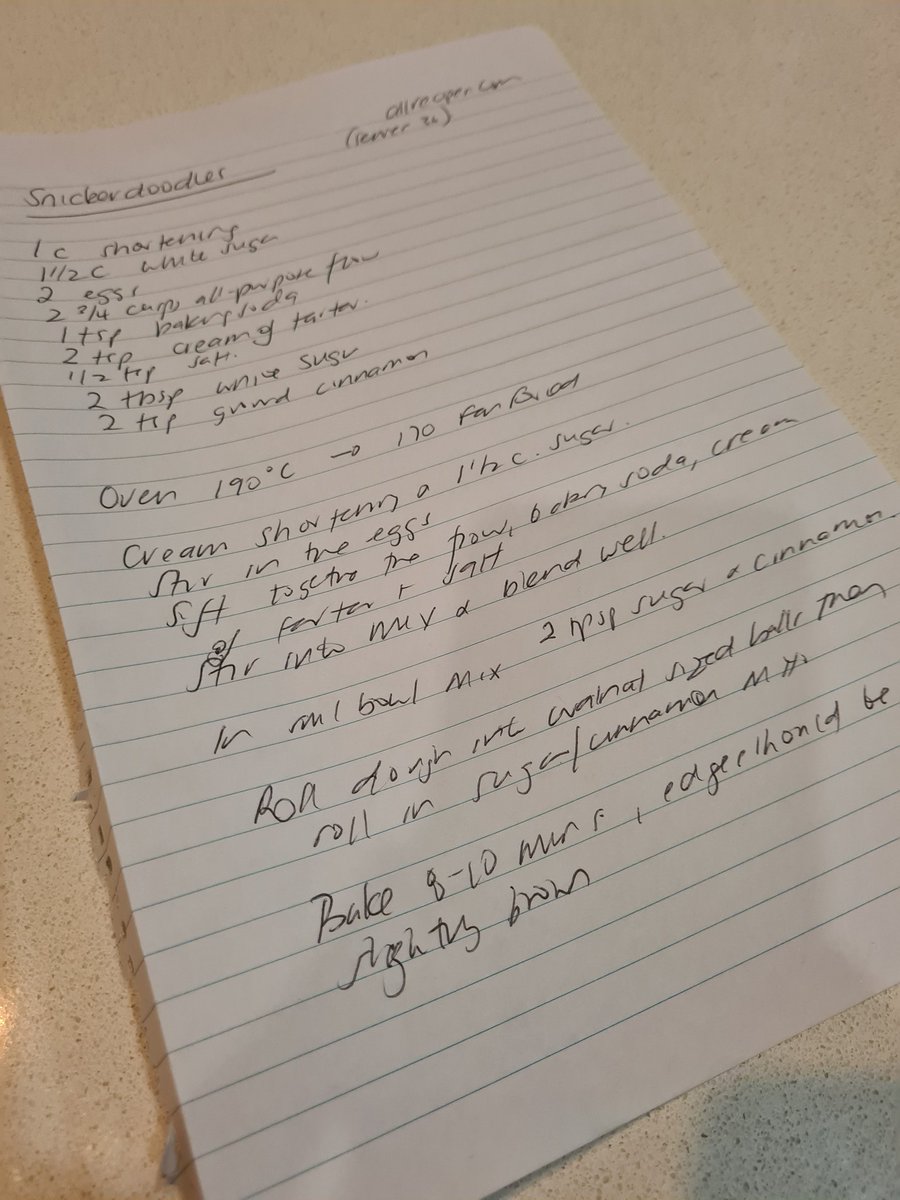 allrecipes.com
(serves 36)
Snickerdoodles
1 c shortening
1 1/2 c white sugar
2 eggs
2 3/4 cups all-purpose flour
1 tsp baking soda
2 tsp cream of tarter.
1/2 tsp salt.
2 tbsp white sugar
2 tsp ground cinnamon
Oven 190°C → 170 Fan Forced
Cream shortening & 1 1/2 c. sugar.
Stir in the eggs
Sift together the flour, baking soda, cream
of tarter + salt
Stir into mix & blend well.
In small bowl mix 2 tbsp sugar & cinnamon.
Roll dough into walnut sized balls then
roll in sugar/cinnamon mix
Bake 8-10 mins, edges should be
slightly brown